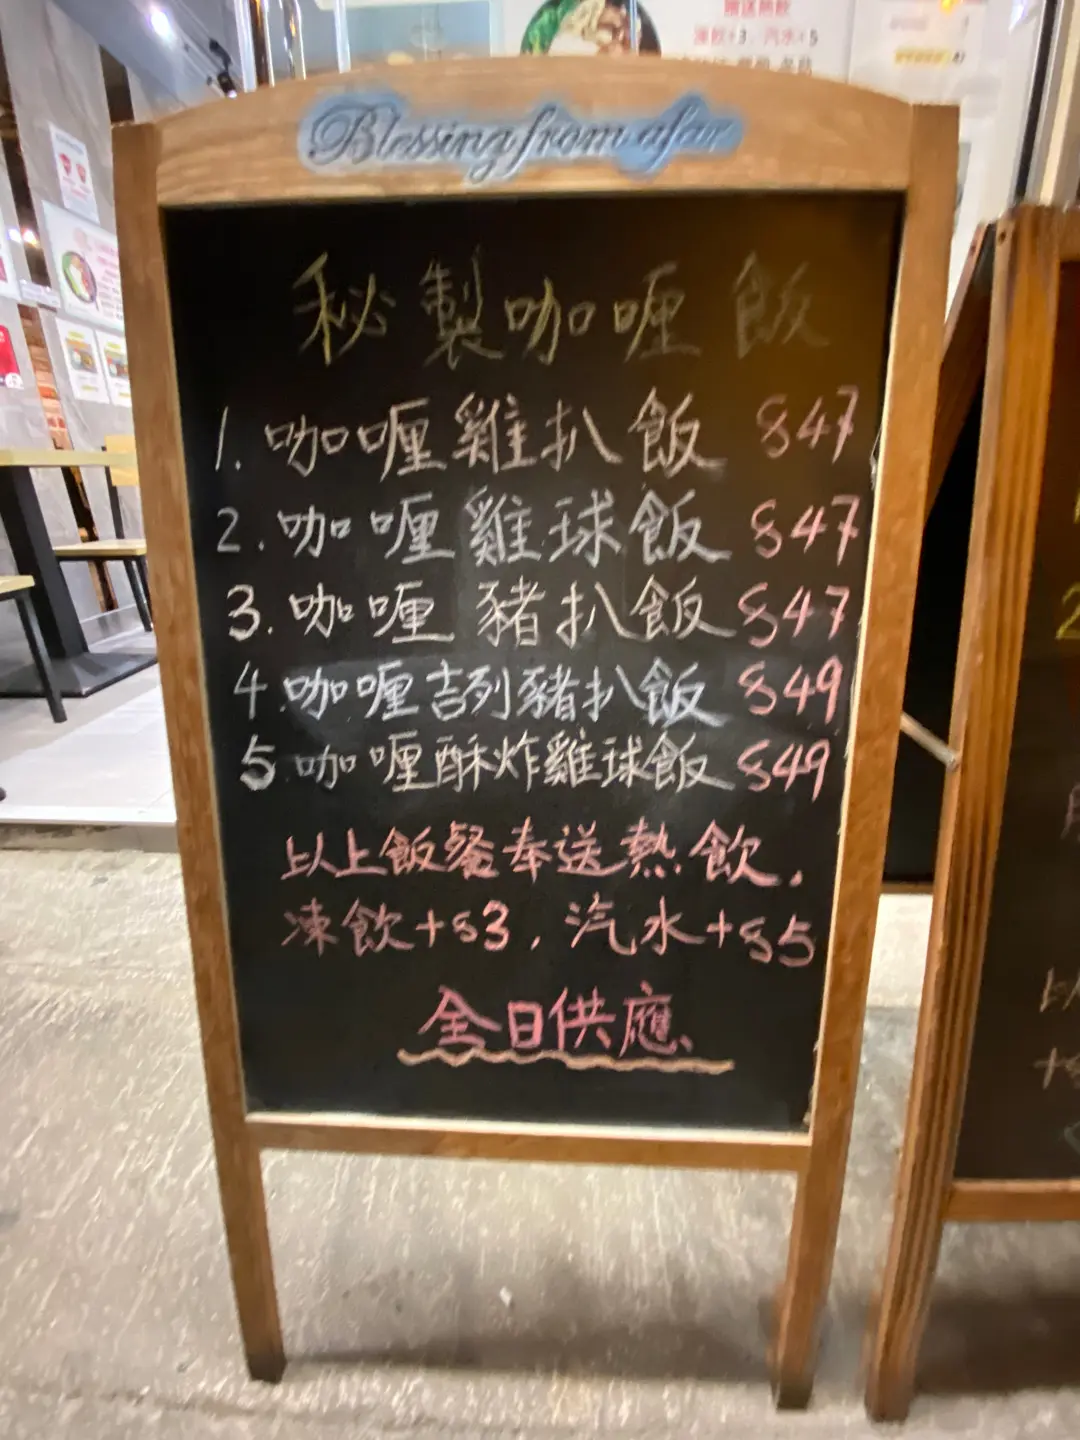 贈送熱飲
凍飲+3．汽水+5
Blessing from afar
秘製咖喱飯
1. 咖喱雞扒飯 $47
2. 咖喱雞球飯 $47
3. 咖喱豬扒飯 $47
4. 咖喱吉列豬扒飯 $49
5. 咖喱酥炸雞球飯 $49
以上飯餐奉送熱飲.
凍飲+$3, 汽水+$5
全日供應